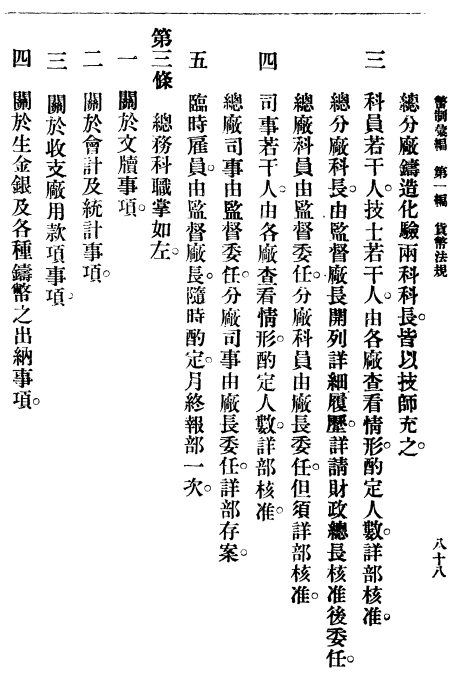 幣制彙編　第一編　貨幣法規　　八十八
總分廠鑄造化驗兩科科長。皆以技師充之。
三　科員若干人。技士若干人。由各廠查看情形。酌定人數。詳部核准。
總分廠科長。由監督廠長開列詳細履歷。詳請財政總長核准後委任。
總廠科員由監督委任。分廠科員由廠長委任。但須詳部核准。
四　司事若干人。由各廠查看情形。酌定人數。詳部核准。
總廠司事由監督委任。分廠司事由廠長委任。詳部存案。
五　臨時雇員。由監督廠長。隨時酌定。月終報部一次。
第三條　總務科職掌如左。
一　關於文牘事項。
二　關於會計及統計事項。
三　關於收支廠用款項事項。
四　關於生金銀及各種鑄幣之出納事項。